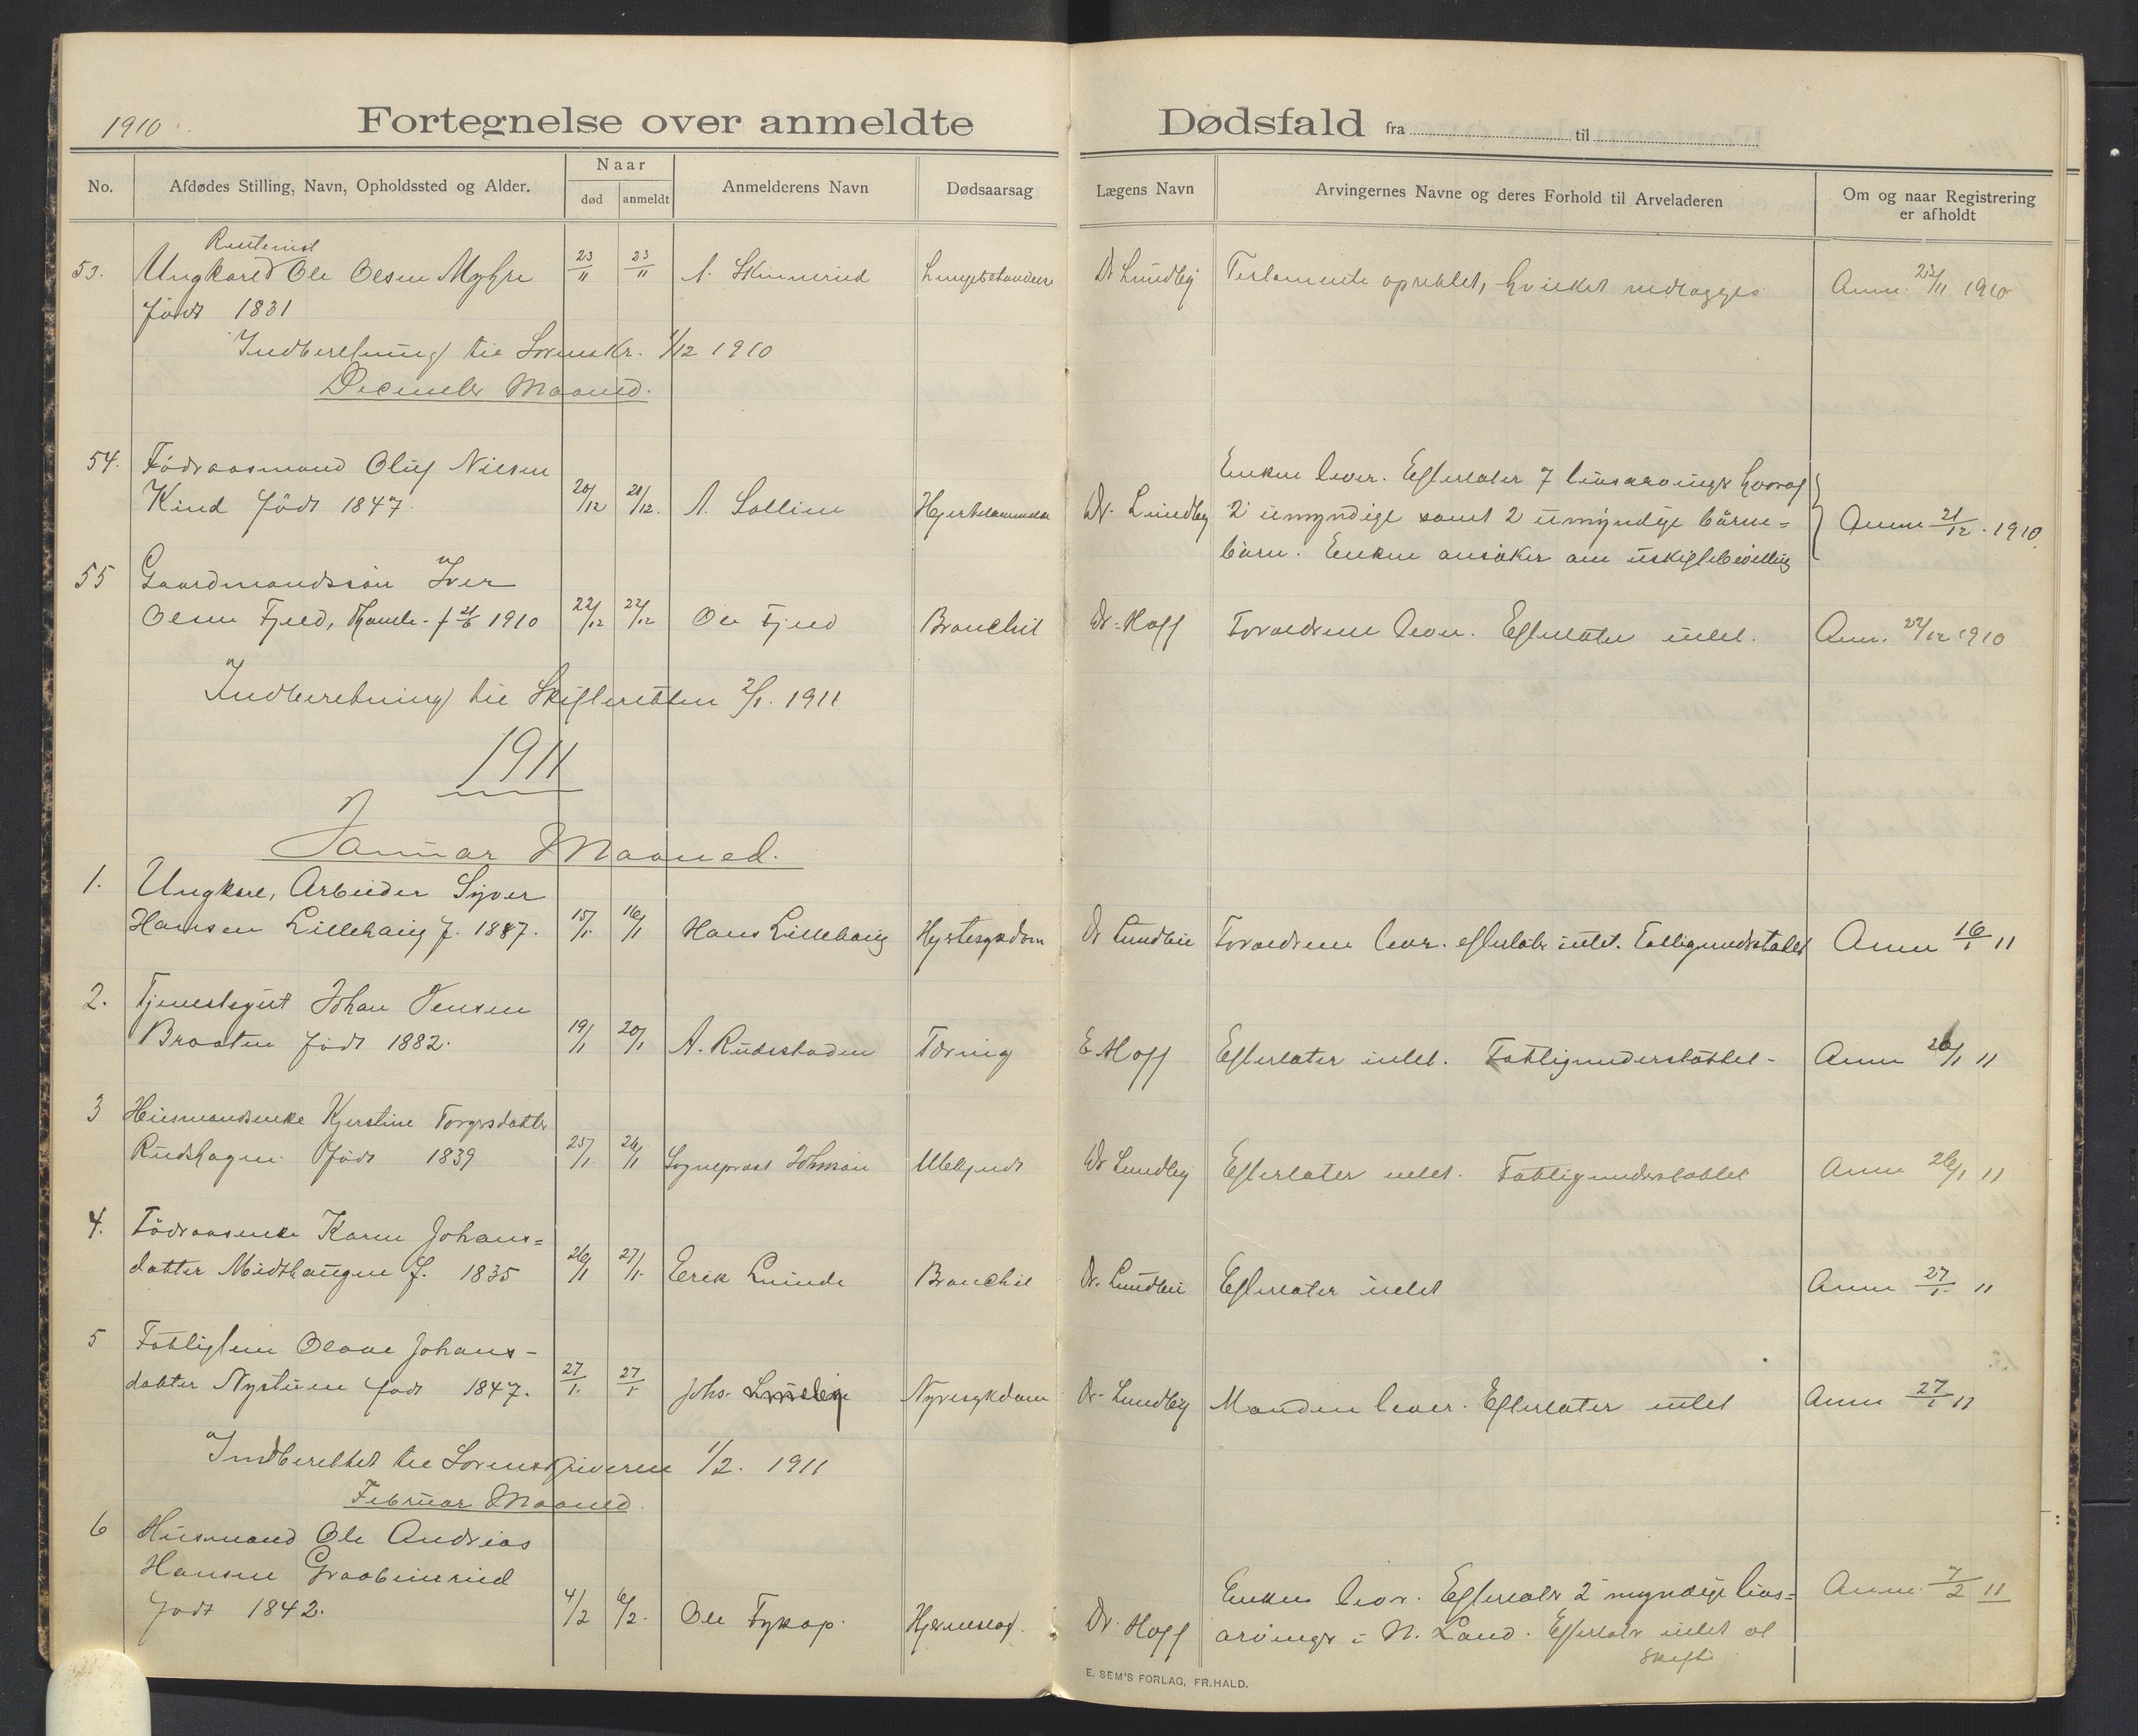 1910
Fortegnelse over anmeldte Dødsfald fra til
No.
Afdødes Stilling, Navn, Opholdssted og Alder.
Naar
død
anmeldt
Anmelderens Navn
Dødsaarsag
Lægens Navn
Arvingernes Navne og deres Forhold til Arveladeren
Om og naar Registrering
er afholdt
Rentenist
53. Ungkarl Ole Olsen Myhre 23/11 23/11 A. Skinnerud Dr Lundby Testamente oprettet, hvilket vedlægges Anm. 23/11 1910
født 1831
Indberetning til Sorenskr. 1/12 1910
December Maaned.
54. Födraasmand Oluf Nilsen Enken lever. Efterlater 7 livsarvinger hvoraf
Kind født 1847. 20/12 21/12. A. Sollien Dr. Lundby 2 umyndige samt 2 umyndige börne=
börn. Enken ansöker om uskiftebevilling Anm 21/12. 1910
55 Gaardmandssön Iver
Olsen Fjeld, f 21/6 1910 22/12 22/12 Ole Fjeld Bronchit Dr. Hoff Forældrene lever. Efterlater intet. Anm. 22/12 1910
Indberetning til Skifteretten 2/1. 1911
1911
Januar Maaned.
1. Ungkarl, Arbeider Syver
Hansen Lillehaug f. 1887. 15/1 16/1 Hans Lillehaug Hjertesygdom Dr Lundbei Forældrene lever. efterlater intet. Anm 16/1 11
2. Tjenestegut Johan Jensen
Braaten født 1882. 19/1 20/1 A. Rudsstaden Tæring E Hoff Efterlater intet. Fattigunderstøttet. Anm 20/1 11
3 Husmandsenke Kjerstine Torgersdatter
Rudshagen født 1839 25/1. 26/1 Sogneprest Johnsön Ubekjendt Dr Lundby Efterlater intet. Fattigunderstøttet Anm 26/1 11
4. Födraasenke Karen Johans=
datter Midthaugen f. 1835 26/1 27/1. Erik Lunde Bronchit Dr. Lundbei Efterlater intet Anm 27/1 11
5 Fattiglem Oleave Johans-
datter Nystuen født 1847. 27/1. 27/1 Johs. Nyresykdom Dr. Lundby Manden lever. Efterlater intet Anm 27/1 11
Indberettet til Sorenskriveren 1/2. 1911
Februar Maaned.
6 Husmand Ole Andreas
Hansen Graabeinrud Enken lever. Efterlater 2 myndige livs= Anm. 7/2 11
født 1842. 4/2 6/2. Ole Hjerneslag. Dr. Hoff arvinger i N. Land. Efterlater intet at
skifte
E. SEM'S FORLAG, FR.HALD.